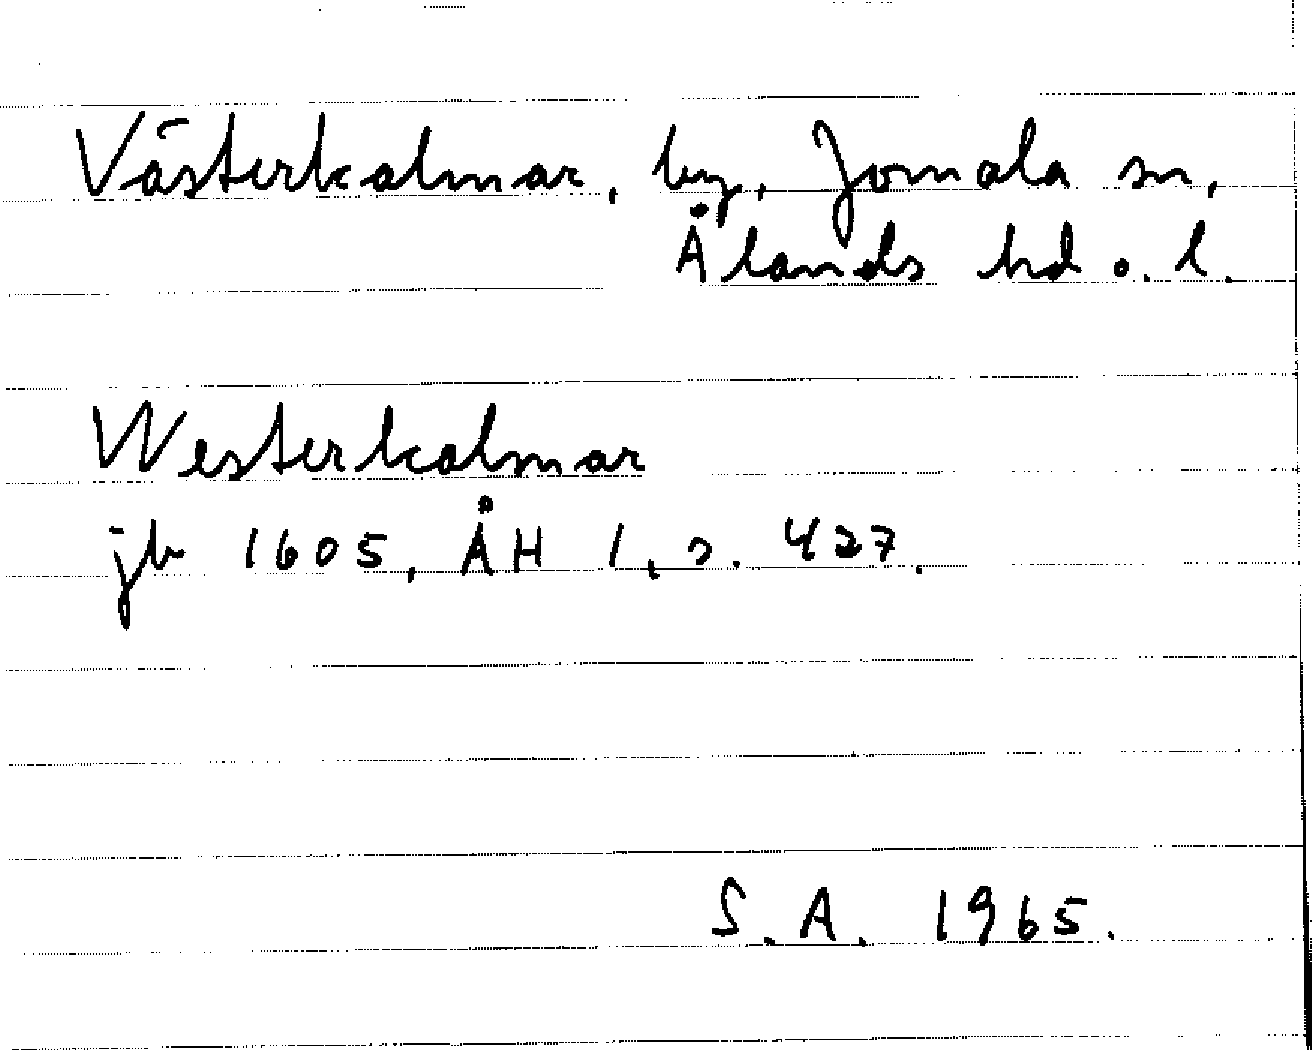 Västerkalmar, by, Jomala sn,
Ålands hd o. l.
Westerkalmar
jb 1605, ÅH 1, s. 427.
S.A. 1965.